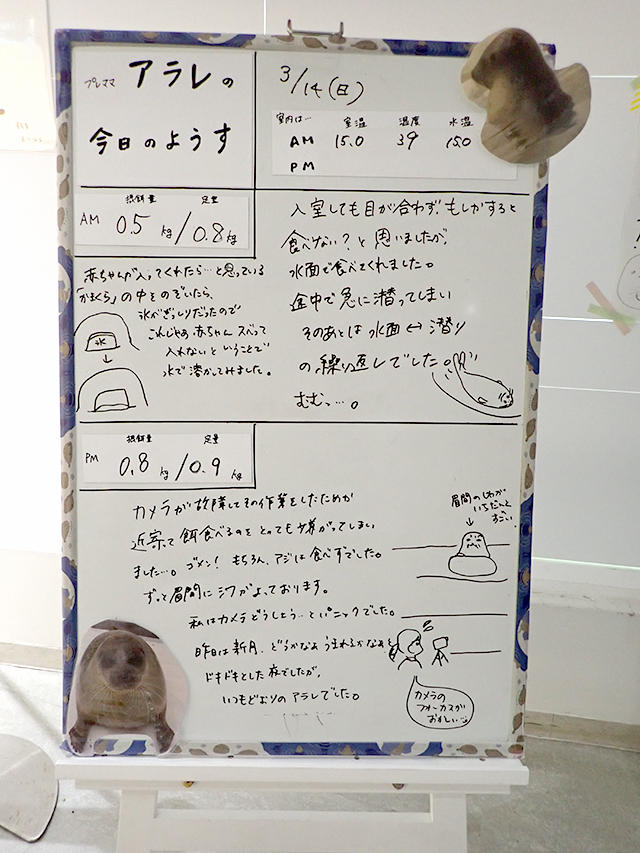 プレママ アラレの
今日のようす
3/14(日)
室内は… 室温 湿度 水温
AM 15.0 39 15.0
PM
AM 摂餌量 0.5 kg / 定量 0.8 kg
入室しても目が合わず、もしかすると
食べない?と思いましたが、
水面で食べてくれました。
途中で急に潜ってしまい
そのあとは水面↔潜り
の繰り返しでした。
むむっ…。
赤ちゃんが入ってくれたら…と思っている
「かまくら」の中をのぞいたら、
氷がぎっしりだったので
これじゃあ赤ちゃんスベって
入れないということで
水で溶かしてみました。
氷
PM 摂餌量 0.8 kg / 定量 0.9 kg
カメラが故障してその作業をしたためか
近寄って餌食べるのをとっても嫌がってしまい
ました…。ゴメン! もちろん、アジは食べずでした。
ずっと眉間にシワがよっております。
私はカメラどうしよう…とパニックでした。
昨日は新月、どうかなぁうまれるかなぁと
ドキドキとした夜でしたが、
いつもどおりのアラレでした。
眉間のしわが
いちだんと
すごい。
カメラの
フォーカスが
おかしい